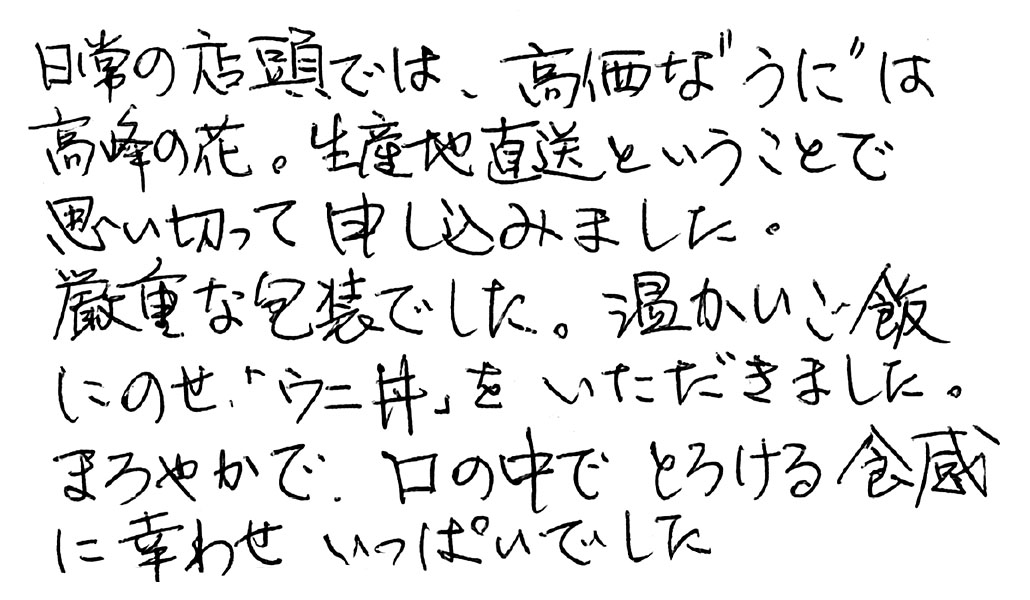 日常の店頭では、高価な"うに"は
高峰の花。生産地直送ということで
思い切って申し込みました。
厳重な包装でした。温かいご飯
にのせ、「ウニ丼」をいただきました。
まろやかで、口の中でとろける食感
に幸わせいっぱいでした